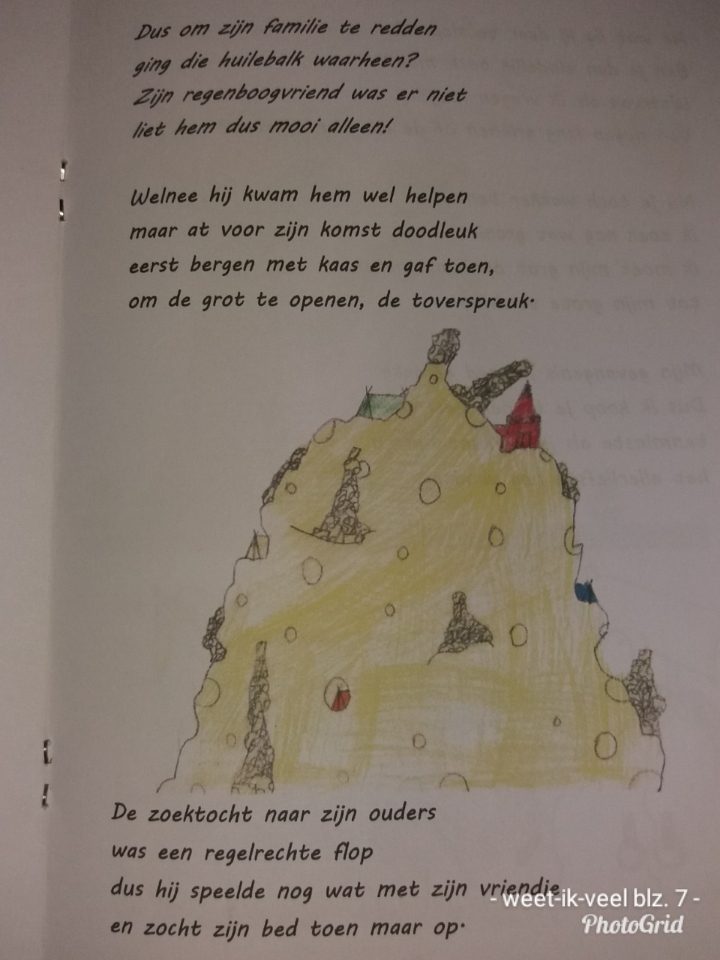 Dus om zijn familie te redden
ging die huilebalk waarheen?
Zijn regenboogvriend was er niet
liet hem dus mooi alleen!
Welnee hij kwam hem wel helpen
maar at voor zijn komst doodleuk
eerst bergen met kaas en gaf toen,
om de grot te openen, de toverspreuk.
De zoektocht naar zijn ouders
was een regelrechte flop
dus hij speelde nog wat met zijn vriendje
en zocht zijn bed toen maar op.
- weet-ik-veel blz. 7 -
PhotoGrid